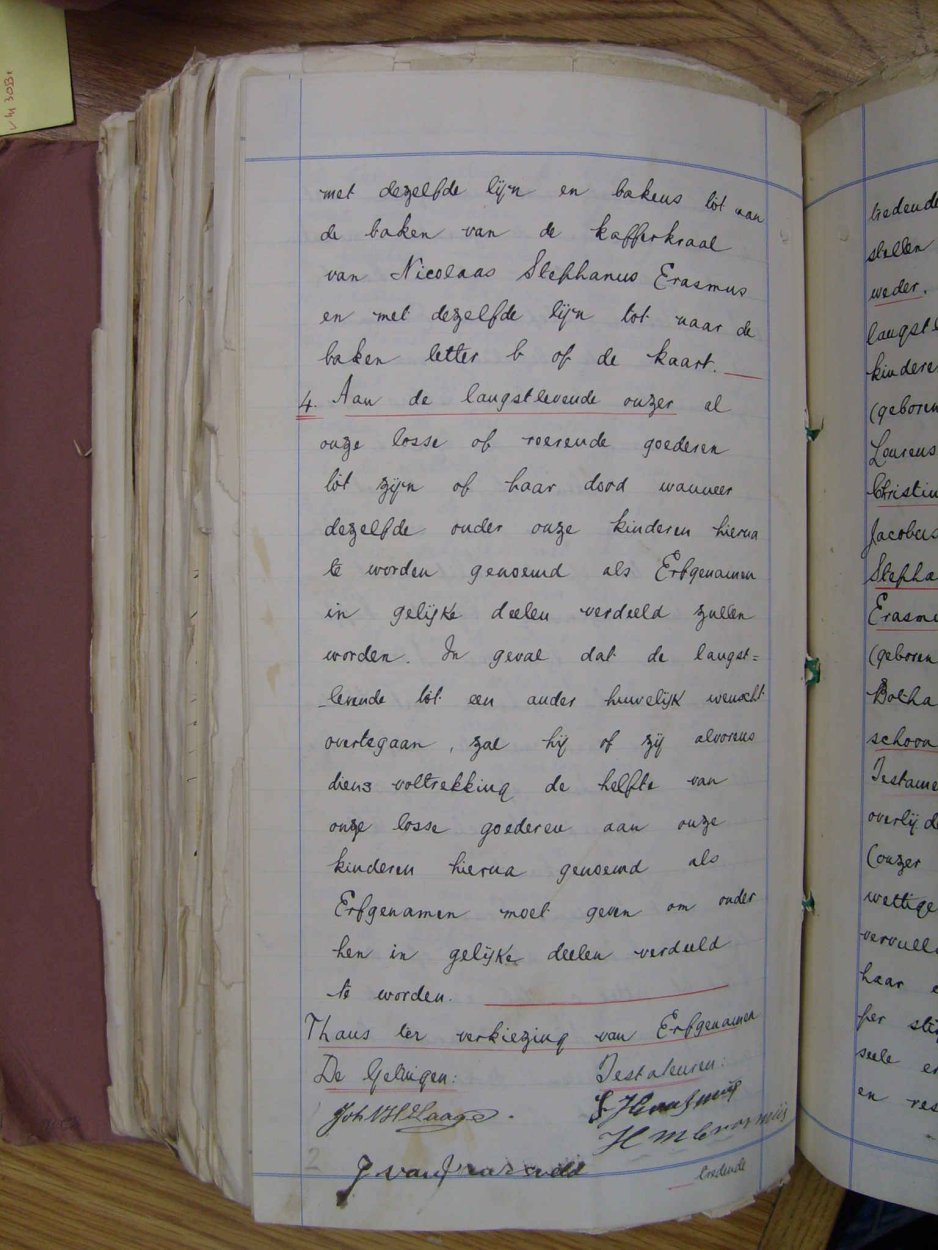 met dezelfde lijn en bakens tot aan
de baken van de kafferkraal
van Nicolaas Stephanus Erasmus
en met dezelfde lijn tot naar de
baken letter b of de kaart.
4. Aan de langstlevende onzer al
onze losse of roerende goederen
tot zijn of haar dood wanneer
dezelfde onder onze kinderen hierna
te worden genoemd als Erfgenamen
in gelijke deelen verdeeld zullen
worden. In geval dat de langst=
levende tot een ander huwelijk wenscht
overtegaan, zal hij of zij alvorens
diens voltrekking de helfte van
onze losse goederen aan onze
kinderen hierna genoemd als
Erfgenamen moet geven om onder
hen in gelijke deelen verdeeld
te worden.
Thans ter verkiezing van Erfgenamen
De Getuigen: Testateuren:
2
tredende
tredende
stellen
weder.
kindere
(geboren
Lourens
Christin
Jacobus
Stepha
Erasm
(geboren
Botha
schoon
Testame
overlijde
(onzer
wettige
vervull
haar e
per sti
seele e
en res